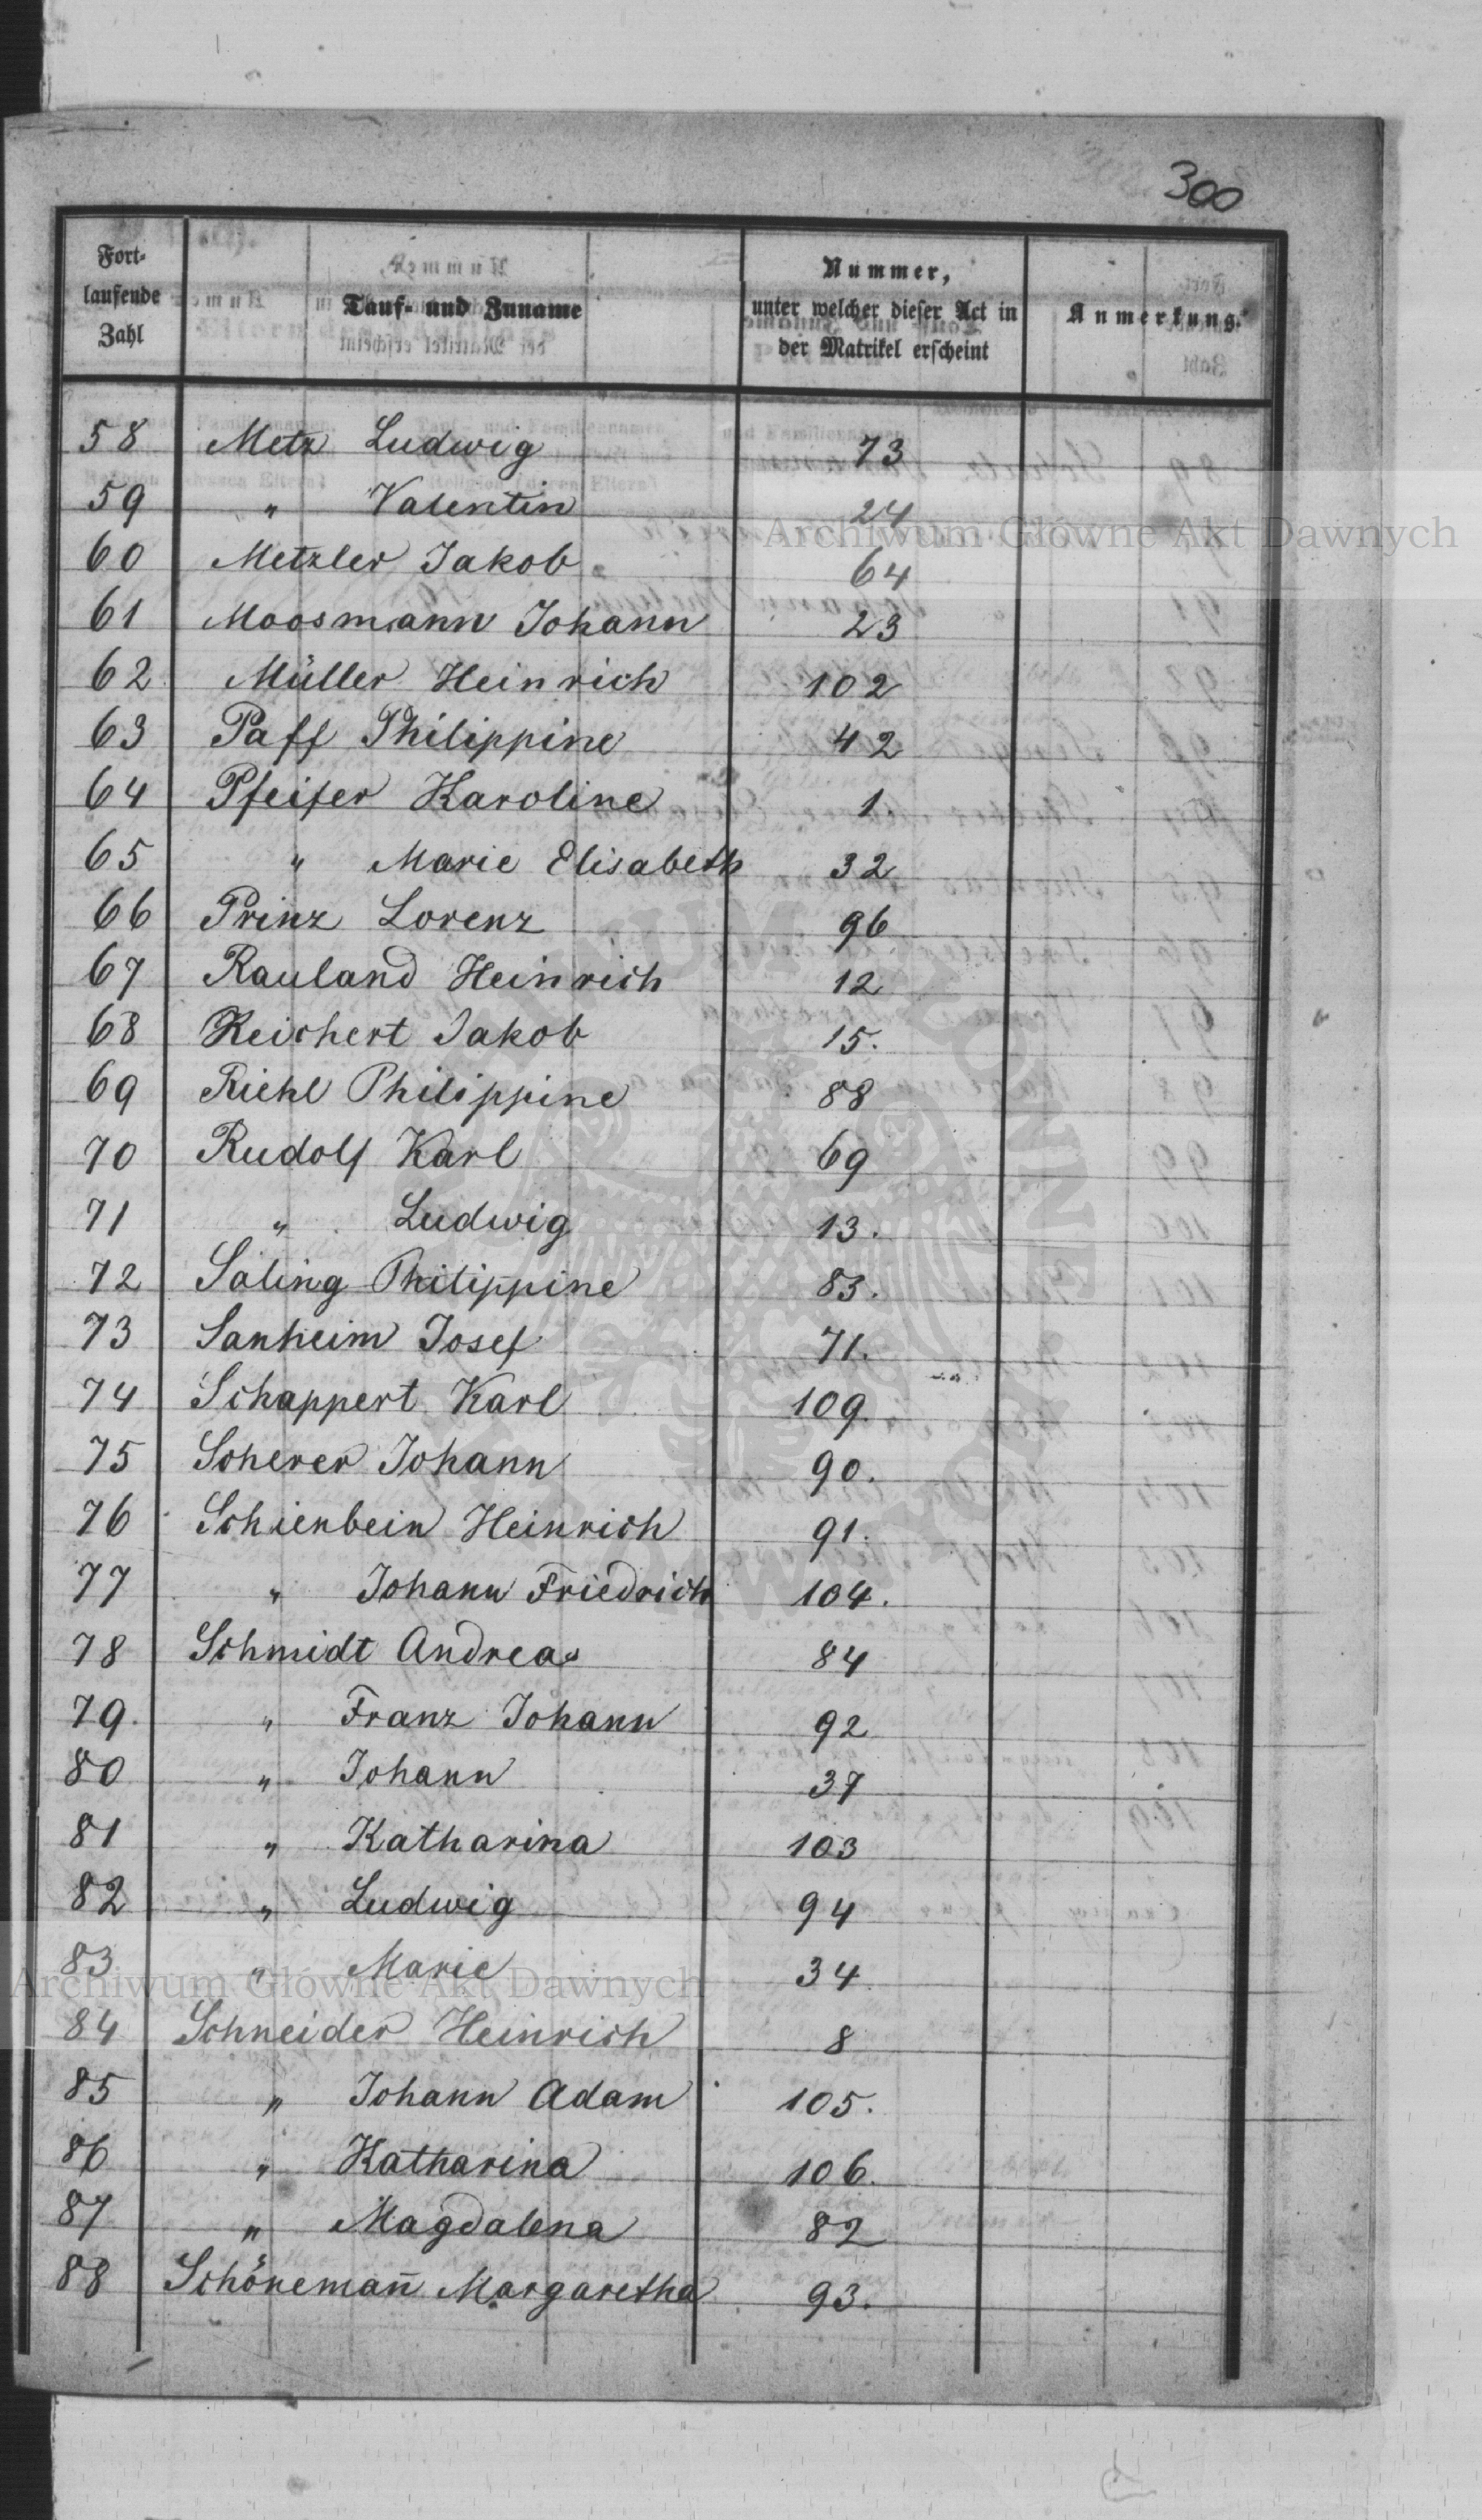 300
Fort-
laufende
Zahl
Tauf- und Zuname
Nummer,
unter welcher dieser Act in
der Matrikel erscheint
Anmerkung.
58 Metz Ludwig 73
59 " Valentin 24
Archiwum Główne Akt Dawnych
60 Metzler Jakob 64
61 Moosmann Johann 23
62 Müller Heinrich 102
63 Paff Philippine 42
64 Pfeifer Karoline 1.
65 " Marie Elisabeth 32
66 Prinz Lorenz 96
67 Rauland Heinrich 12
68 Reichert Jakob 15.
69 Riehl Philippine 88
70 Rudolf Karl 69
71 " Ludwig 13.
72 Saling Philippine 83.
73 Sanheim Josef 71.
74 Schappert Karl 109.
75 Scherer Johann 90.
76 Schienbein Heinrich 91.
77 " Johann Friedrich 104.
78 Schmidt Andreas 84
79. " Franz Johann 92
80 " Johann 37
81 " Katharina 103
82 " Ludwig 94
83 " Marie 34
Archiwum Główne Akt Dawnych
84 Schneider Heinrich 8
85 " Johann Adam 105.
86 " Katharina 106.
87 " Magdalena 82
88 Schönemañ Margaretha 93.